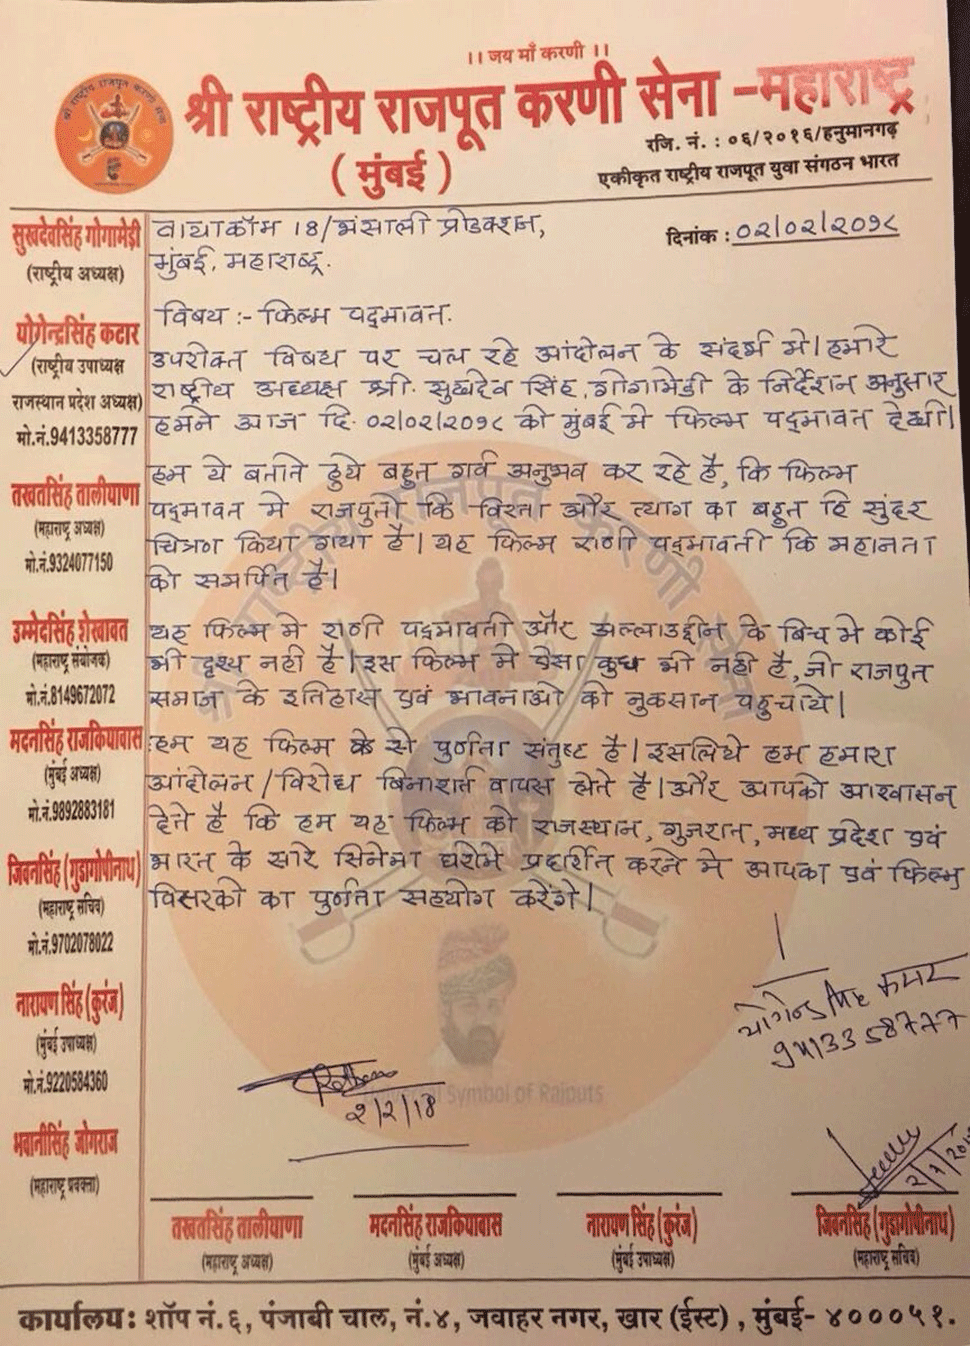 ।। जय माँ करणी ।।
श्री राष्ट्रीय राजपूत करणी सेना –महाराष्ट्र
( मुंबई )
रजि. नं. : ०६/२०१६/हनुमानगढ़
एकीकृत राष्ट्रीय राजपूत युवा संगठन भारत
दिनांक : ०२/०२/२०१८
सुखदेवसिंह गोगामेड़ी
(राष्ट्रीय अध्यक्ष)
योगेन्द्रसिंह कटार
(राष्ट्रीय उपाध्यक्ष
राजस्थान प्रदेश अध्यक्ष)
मो.नं.9413358777
तखतसिंह तालीयाणा
(महाराष्ट्र अध्यक्ष)
मो.नं.9324077150
उम्मेदसिंह शेखावत
(महाराष्ट्र संयोजक)
मो.नं.8149672072
मदनसिंह राजकियावास
(मुंबई अध्यक्ष)
मो.नं.9892883181
जिवनसिंह (गुडागोपीनाथ)
(महाराष्ट्र सचिव)
मो.नं.9702078022
नारायण सिंह (कुरंज)
(मुंबई उपाध्यक्ष)
मो.नं.9220584360
भवानीसिंह जोगराज
(महाराष्ट्र प्रवक्ता)
वायाकॉम 18/भंसाली प्रोडक्शन,
मुंबई, महाराष्ट्र.
विषय :- फिल्म पद्मावत.
उपरोक्त विषय पर चल रहे आंदोलन के संदर्भ मे। हमारे
राष्ट्रीय अध्यक्ष श्री. सुखदेव सिंह, गोगामेडी के निर्देशन अनुसार
हमने आज दि. ०२/०२/२०१८ को मुंबई मे फिल्म पद्मावत देखी।
हम ये बताते हुये बहुत गर्व अनुभव कर रहे है, कि फिल्म
पद्मावत मे राजपुतो कि विरता और त्याग का बहुत हि सुंदर
चित्रण किया गया है। यह फिल्म राणी पद्मावती कि महानता
को समर्पित है।
यह फिल्म मे राणी पद्मावती और अल्लाउद्दीन के बिच मे कोई
भी दृश्य नही है। इस फिल्म मे ऐसा कुछ भी नही है, जो राजपुत
समाज के इतिहास एवं भावनाओ को नुकसान पहुचाये।
हम यह फिल्म से पुर्णता संतुष्ट है। इसलिये हम हमारा
आंदोलन/विरोध बिनाशर्त वापस लेते है। और आपको आश्वासन
देते है कि हम यह फिल्म को राजस्थान, गुजरात, मध्य प्रदेश एवं
भारत के सारे सिनेमा घरोमे प्रदर्शित करने मे आपका एवं फिल्म
वितरको का पुर्णता सहयोग करेंगे।
योगेन्द्र सिंह कटार
9413358777
2/2/18
Universal Symbol of Rajputs
तखतसिंह तालीयाणा
(महाराष्ट्र अध्यक्ष)
मदनसिंह राजकियावास
(मुंबई अध्यक्ष)
नारायण सिंह (कुरंज)
(मुंबई उपाध्यक्ष)
जिवनसिंह (गुडागोपीनाथ)
(महाराष्ट्र सचिव)
कार्यालय: शॉप नं.६, पंजाबी चाल, नं.४, जवाहर नगर, खार (ईस्ट) , मुंबई- ४०००५१.